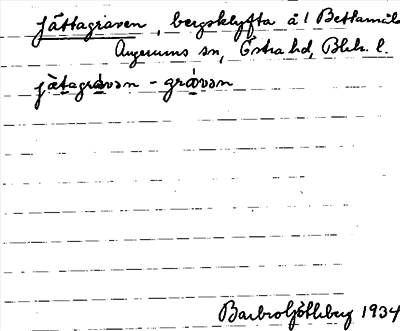 Jättagraven, bergsklyfta å 1 Bethamåla
Augerums sn, Östra hd, Blek. l.
jä̀tagrávən - gràvən
Barbro Götheberg 1934